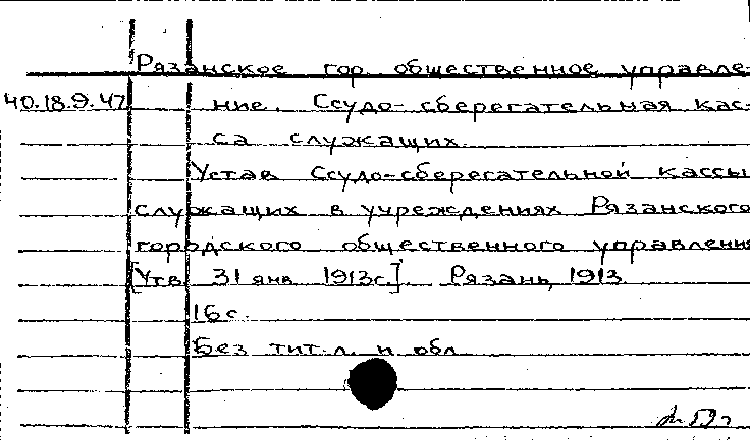 Рязанское гор. общественное управле-
40.18.9.47 ние. Ссудо-сберегательная кас-
са служащих.
Устав Ссудо-сберегательной кассы
служащих в учреждениях Рязанского
городского общественного управления
[Утв. 31 янв. 1913г.]. Рязань, 1913.
16с.
Без тит. л. и обл.